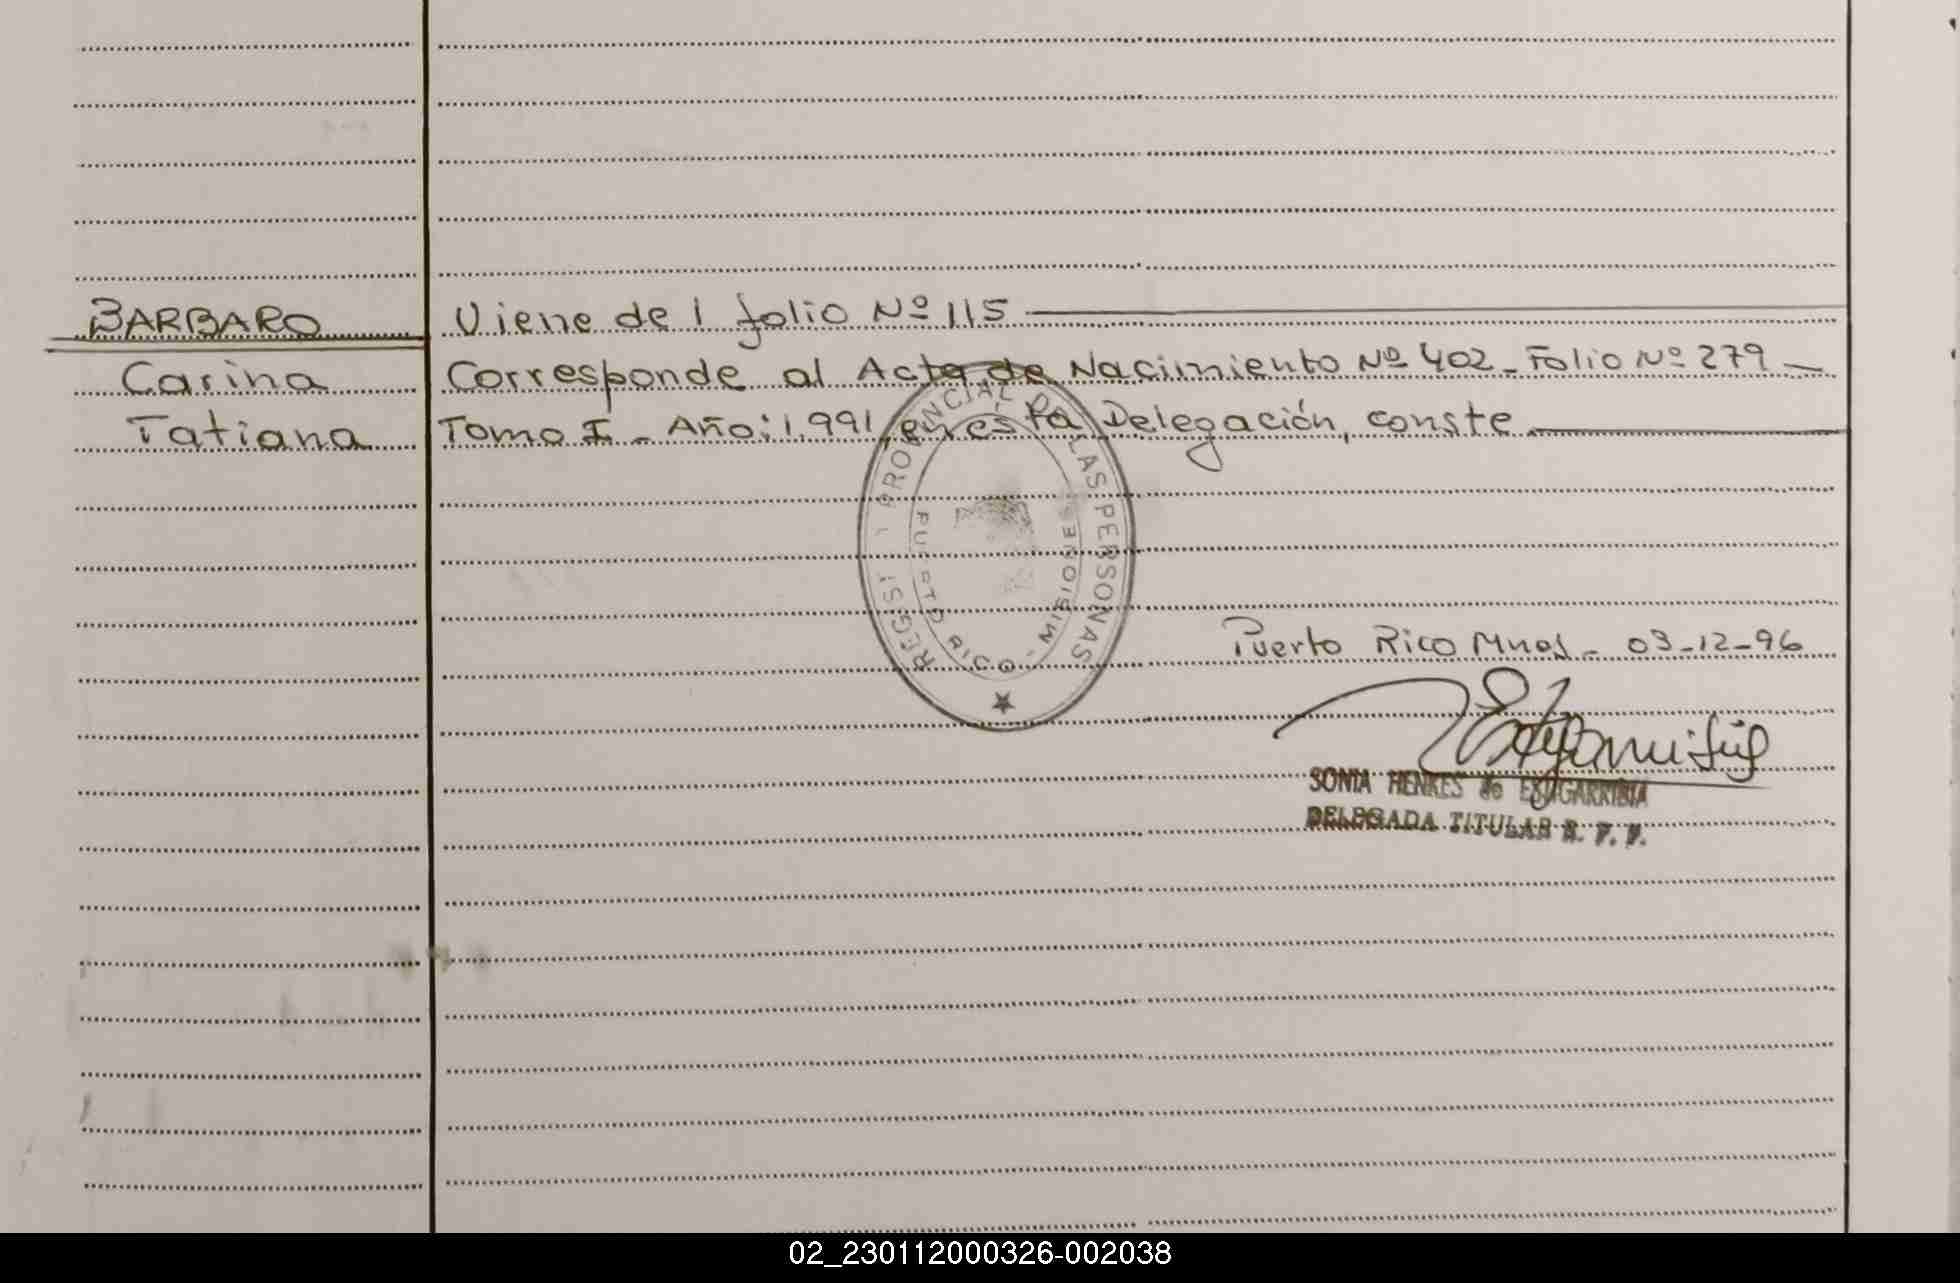 BARBARO
Carina
Tatiana
Viene del folio Nº 115
Corresponde al Acta de Nacimiento Nº 402 - Folio Nº 279 -
Tomo I - Año: 1.991, en esta Delegación, conste
PROVINCIAL DE LAS PERSONAS
PUERTO RICO - MISIONES
Puerto Rico Mnes - 03-12-96
SONIA HENKES de ESTIGARRIBIA
DELEGADA TITULAR R. P. P.
02_230112000326-002038